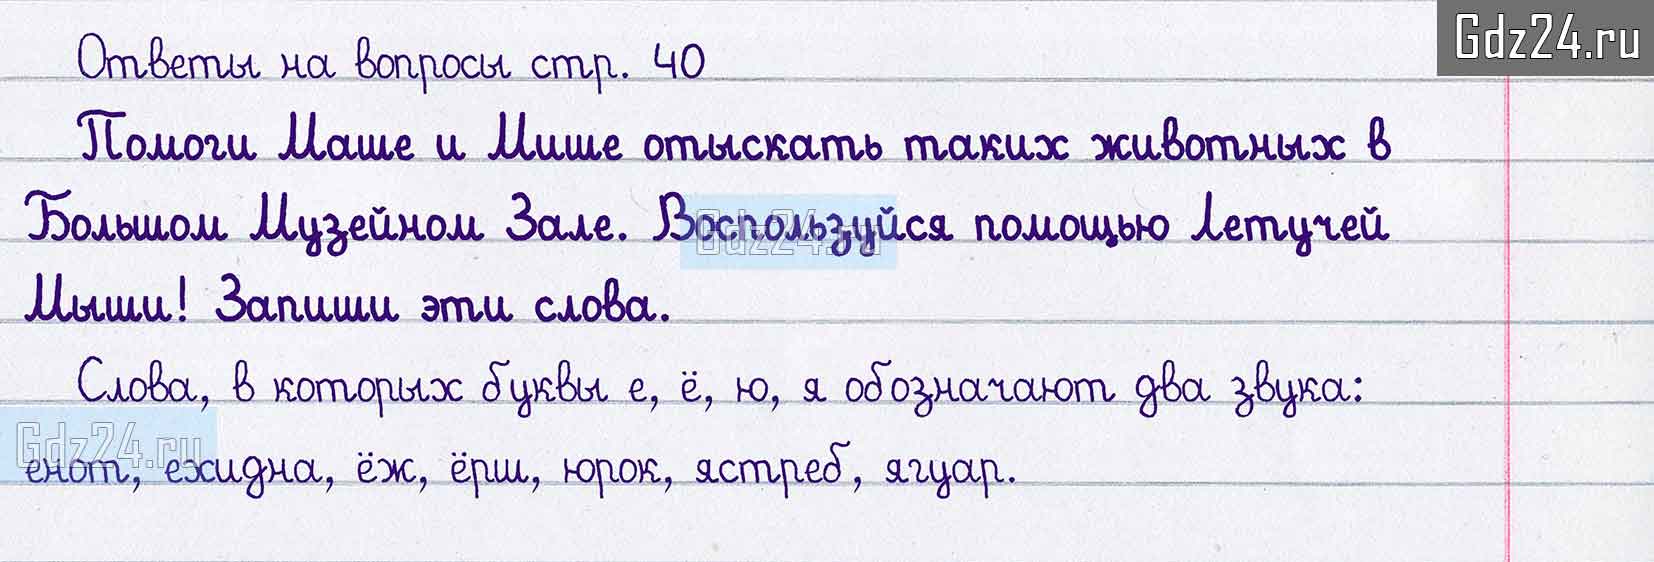 Gdz24.ru
Ответы на вопросы стр. 40
Помоги Маше и Мише отыскать таких животных в
Большом Музейном Зале. Воспользуйся помощью Летучей
Мыши! Запиши эти слова.
Gdz24.ru
Слова, в которых буквы е, ё, ю, я обозначают два звука:
Gdz24.ru
енот, ехидна, ёж, ёрш, юрок, ястреб, ягуар.